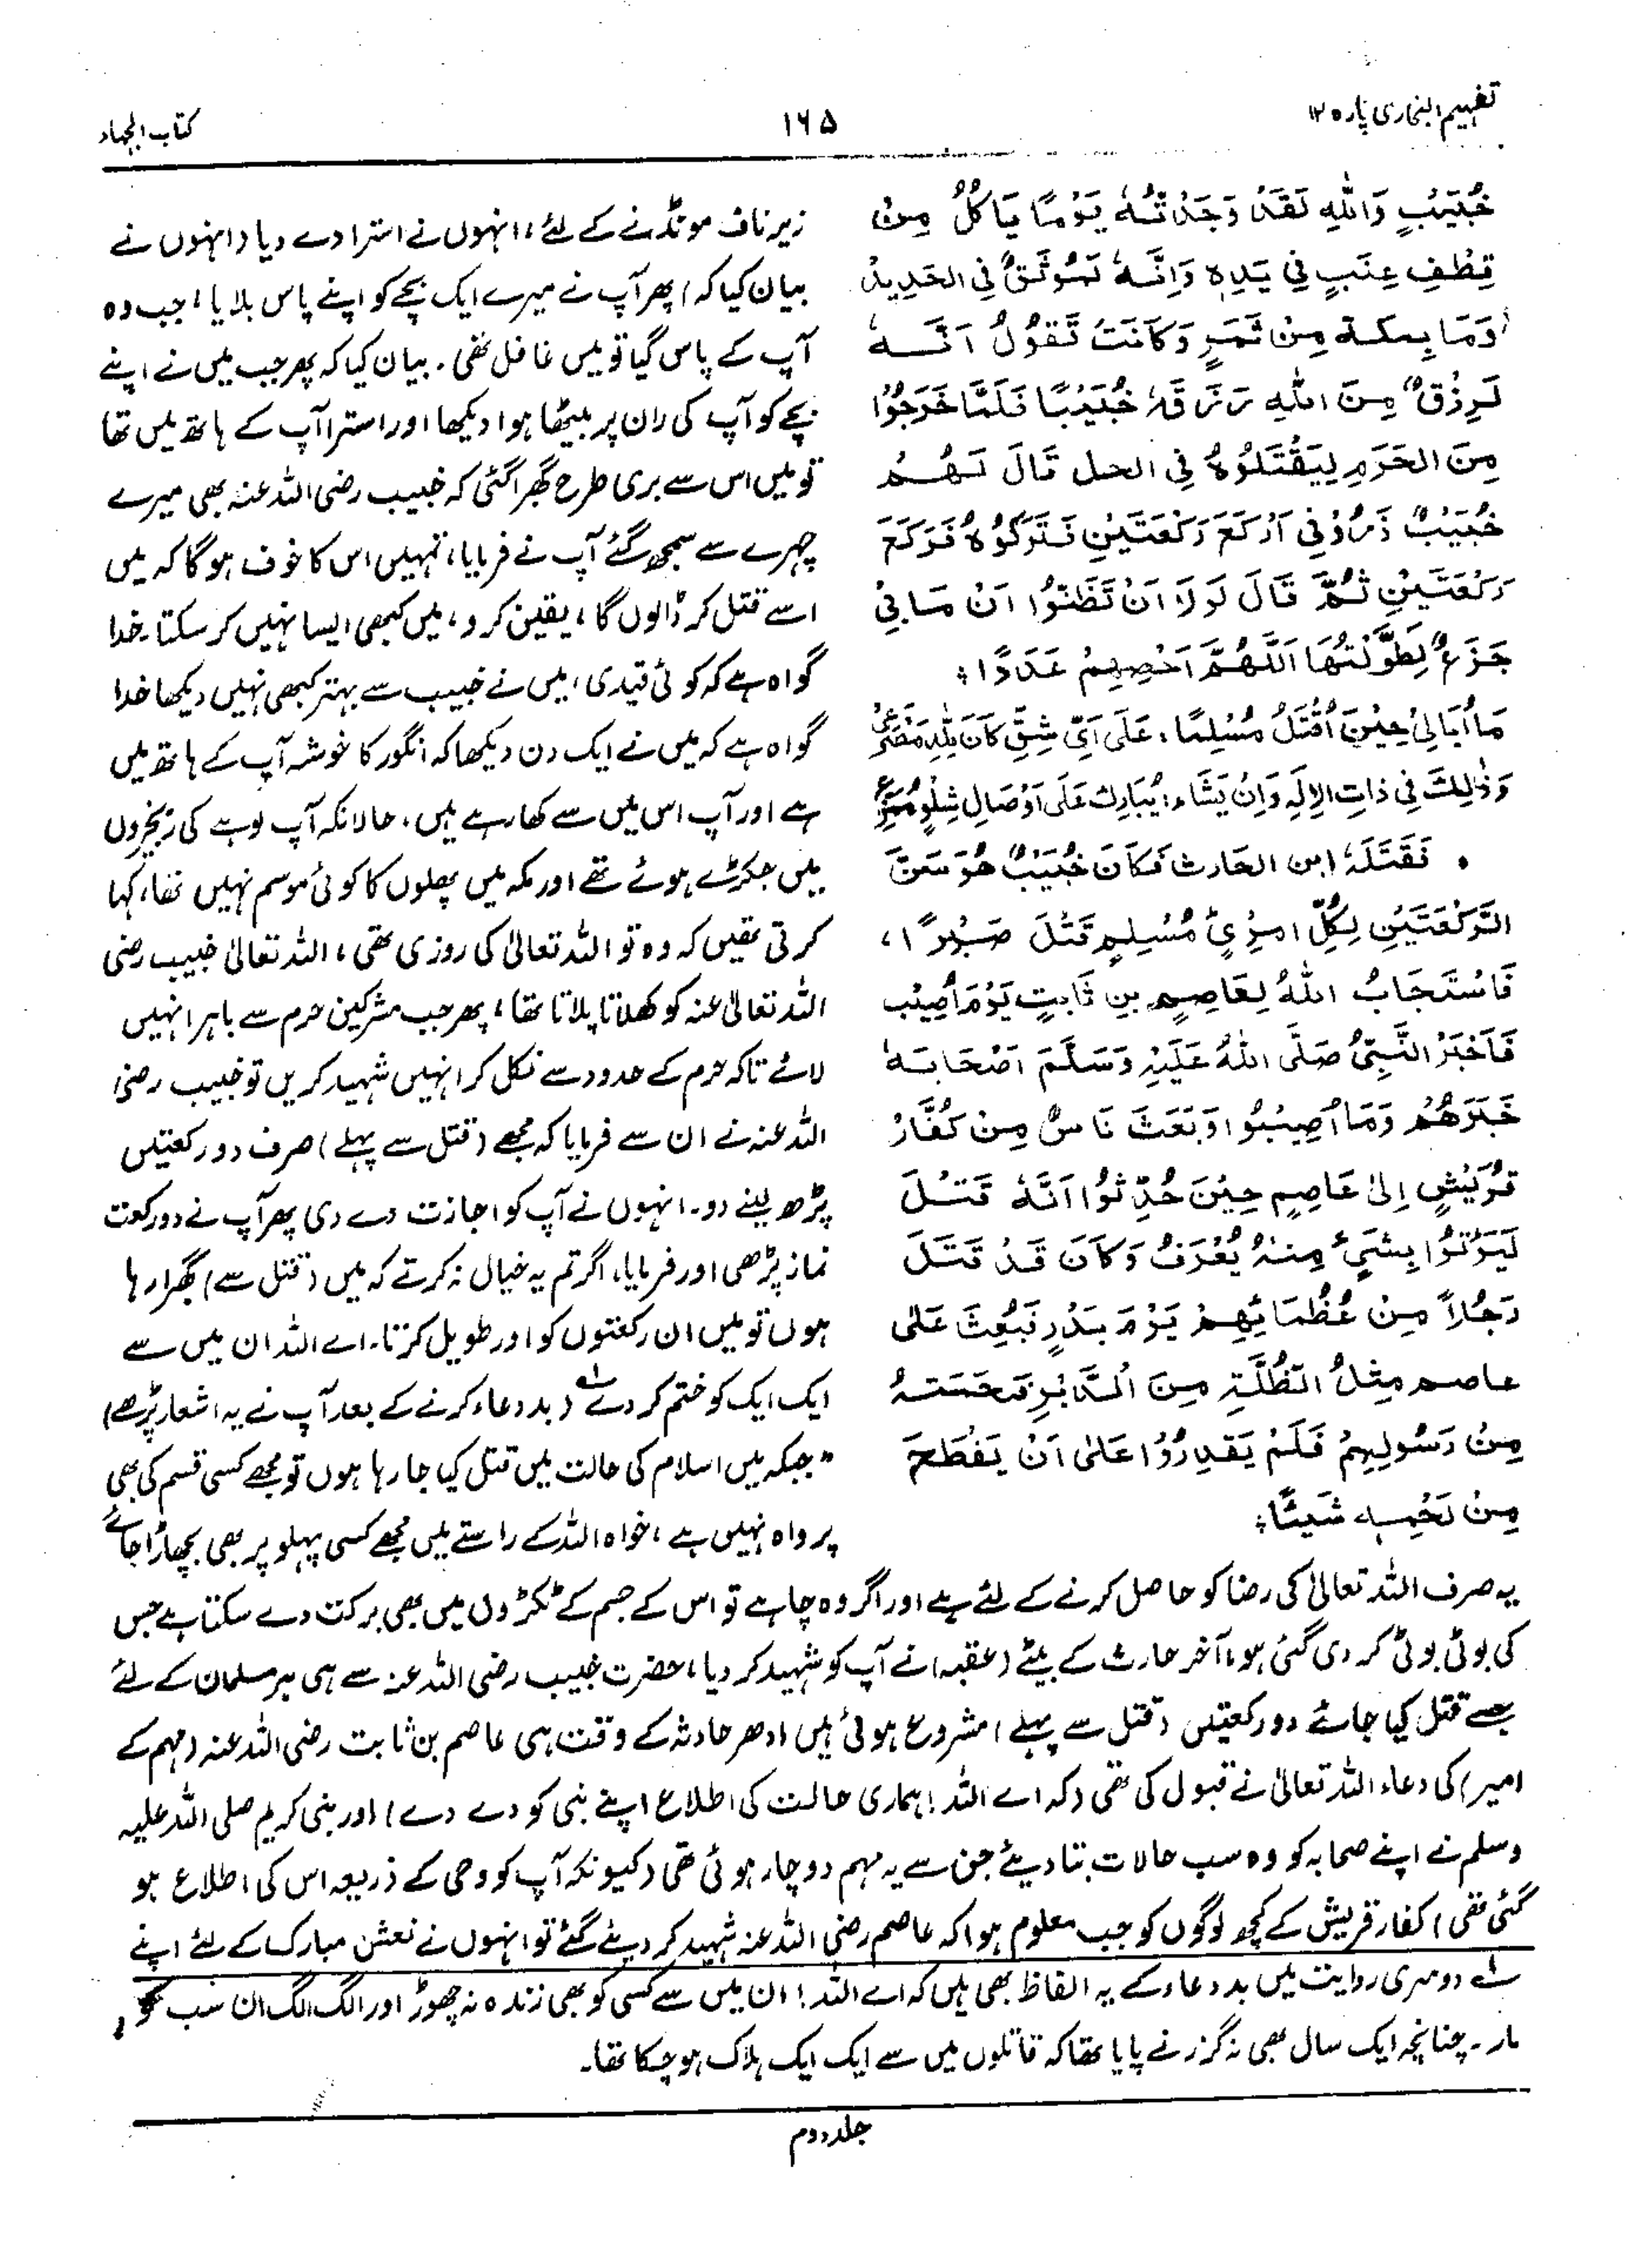 تفہیم البخاری پارہ ۱۲
۱۶۵
کتاب الجہاد
خُبَيْبٍ وَاللّٰهِ لَقَدْ وَجَدْتُهُ يَوْمًا يَاكُلُ مِنْ
قِطْفِ عِنَبٍ فِي يَدِهٖ وَاِنَّهٗ لَمُوْثَقٌ فِي الحَدِيدِ
وَمَا بِمكة مِنْ ثَمَرٍ وَكَانَتْ تَقُوْلُ اَنَّهٗ
لَرِزْقٌ مِنَ اللّٰهِ رَزَقَهٗ خُبَيْبًا فَلَمَّا خَرَجُوْا
مِنَ الحَرَمِ لِيَقْتُلُوْهُ فِي الحل قَالَ لَهُمْ
خُبَيْبٌ ذَرُوْنِي اَرْكَعَ رَكْعَتَيْنِ فَتَرَكُوْهُ فَرَكَعَ
رَكْعَتَيْنِ ثُمَّ قَالَ لَوْلَا اَنْ تَظُنُّوْا اَنْ مَا بِيْ
جَزَعٌ لَطَوَّلْتُهَا اَللّٰهُمَّ اَحْصِهِمْ عَدَدًا؛
مَا اُبَالِيْ حِيْنَ اُقْتَلُ مُسْلِمًا ؛ عَلَى اَيِّ شِقٍّ كَانَ لِلّٰهِ مَصْرَعِيْ
وَذٰلِكَ فِي ذَاتِ الاِلٰهِ وَاِنْ يَشَاء ؛ يُبَارِك عَلَى اَوْصَالِ شِلْوٍ مُمَزَّعٍ
۔ فَقَتَلَهٗ ابن الحَارث فَكَانَ خُبَيْبٌ هُوَ سَنَّ
الرَّكْعَتَيْنِ لِكُلِّ امْرِیٍٔ مُسْلِمٍ قَتْلَ صَبْرً ا ،
فَاسْتَجَابَ اللّٰهُ لِعَاصِمِ بنِ ثَابِتٍ يَوْمَ اُصِيْب
فَاَخْبَرَ النَّبِيُّ صَلَّى اللّٰهُ عَلَيْهِ وَسَلَّمَ اَصْحَابَهٗ
خَبَرَهُمْ وَمَا اُصِيْبُوْا وَبَعَثَ نَاسٌ مِنْ كُفَّارْ
قُرَيْشٍ اِلىٰ عَاصِمٍ حِيْنَ حُدِّثُوْا اَنَّهٗ قَتْلَ
لِيَؤْتَوْا بِشَيْءٍ مِنْهُ يُعْرَفُ وَكَانَ قَدْ قَتَلَ
رَجُلاً مِنْ عُظَمَائِهِمْ يَوْمَ بَدْرٍ فَبُعِثَ عَلٰى
عاصم مِثْلُ الظُّلَّةِ مِنَ الْدَّبْرِ فَحَمَتْهُ
مِنْ رَسُولِهِمْ فَلَمْ يَقْدِرُوْا عَلىٰ اَنْ يَقْطَعَ
مِنْ لَحْمِهٖ شَيئًا؛
زیر ناف مونڈنے کے لئے، انہوں نے استرا دے دیا (انہوں نے
بیان کیا کہ) پھر آپ نے میرے ایک بچے کو اپنے پاس بلا یا، جب وہ
آپ کے پاس گیا تو میں غافل تھی۔ بیان کیا کہ پھر جب میں نے اپنے
بچے کو آپ کی ران پر بیٹھا ہوا دیکھا اور استرا آپ کے ہاتھ میں تھا
تو میں اس سے بری طرح گھبرا گئی کہ خبیب رضی اللہ عنہ بھی میرے
چہرے سے سمجھ گئے آپ نے فرمایا، تمہیں اس کا خوف ہو گا کہ میں
اسے قتل کر ڈالوں گا، یقین کرو، میں کبھی ایسا نہیں کر سکتا۔ خدا
گواہ ہے کہ کوئی قیدی، میں نے خبیب سے بہتر کبھی نہیں دیکھا خدا
گواہ ہے کہ میں نے ایک دن دیکھا کہ انگور کا خوشہ آپ کے ہاتھ میں
ہے اور آپ اس میں سے کھا رہے ہیں، حالانکہ آپ لوہے کی زنجیروں
میں جکڑے ہوئے تھے اور مکہ میں پھلوں کا کوئی موسم نہیں تھا، کہا
کرتی تھیں کہ وہ تو اللہ تعالیٰ کی روزی تھی، اللہ تعالیٰ خبیب رضی
اللہ تعالیٰ عنہ کو کھلاتا پلاتا تھا، پھر جب مشرکین حرم سے باہر انہیں
لائے تاکہ حرم کے حدود سے نکل کر انہیں شہید کریں تو خبیب رضی
اللہ عنہ نے ان سے فرمایا کہ مجھے (قتل سے پہلے) صرف دو رکعتیں
پڑھ لینے دو۔ انہوں نے آپ کو اجازت دے دی پھر آپ نے دو رکعت
نماز پڑھی اور فرمایا، اگر تم یہ خیال نہ کرتے کہ میں (قتل سے) گھبرا رہا
ہوں تو میں ان رکعتوں کو اور طویل کرتا۔ اے اللہ ان میں سے
ایک ایک کو ختم کر دے ؎۱ (بددعاء کرنے کے بعد آپ نے یہ اشعار پڑھے)
" جبکہ میں اسلام کی حالت میں قتل کیا جا رہا ہوں تو مجھے کسی قسم کی بھی
پرواہ نہیں ہے، خواہ اللہ کے راستے میں مجھے کسی پہلو پر بھی پچھاڑا جائے
یہ صرف اللہ تعالیٰ کی رضا کو حاصل کرنے کے لئے ہے اور اگر وہ چاہے تو اس کے جسم کے ٹکڑوں میں بھی برکت دے سکتا ہے جس
کی بوٹی بوٹی کر دی گئی ہو، آخر حارث کے بیٹے (عقبہ) نے آپ کو شہید کر دیا، حضرت خبیب رضی اللہ عنہ سے ہی ہر مسلمان کے لئے
جسے قتل کیا جائے دو رکعتیں (قتل سے پہلے) مشروع ہوئی ہیں ادھر حادثہ کے وقت ہی عاصم بن ثابت رضی اللہ عنہ (مہم کے
امیر) کی دعاء اللہ تعالیٰ نے قبول کی تھی (کہ اے اللہ! ہماری حالت کی اطلاع اپنے نبی کو دے دے) اور نبی کریم صلی اللہ علیہ
وسلم نے اپنے صحابہ کو وہ سب حالات بتا دیئے جن سے یہ مہم دوچار ہوئی تھی (کیونکہ آپ کو وحی کے ذریعہ اس کی اطلاع ہو
گئی تھی) کفار قریش کے کچھ لوگوں کو جب معلوم ہوا کہ عاصم رضی اللہ عنہ شہید کر دیئے گئے تو انہوں نے نعش مبارک کے لئے اپنے
؎۱ دوسری روایت میں بددعاء کے یہ الفاظ بھی ہیں کہ اے اللہ! ان میں سے کسی کو بھی زندہ نہ چھوڑ اور الگ الگ ان سب کو
مار۔ چنانچہ ایک سال بھی نہ گزرنے پایا تھا کہ قاتلوں میں سے ایک ایک ہلاک ہو چکا تھا۔
جلد دوم